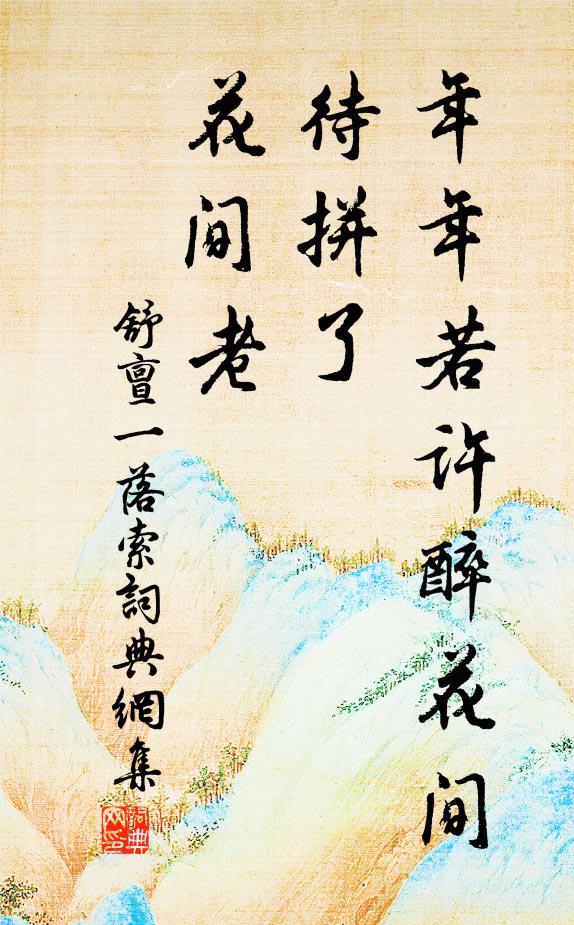 年年若许醉花间
待拼了
花间老
舒亶一落索词典網集
词典
网印